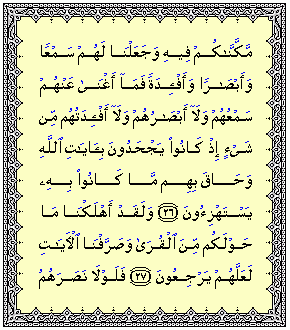 مَّكَّنَّـٰكُمْ فِيهِ وَجَعَلْنَا لَهُمْ سَمْعًا
وَأَبْصَـٰرًا وَأَفْـِٔدَةً فَمَآ أَغْنَىٰ عَنْهُمْ
سَمْعُهُمْ وَلَآ أَبْصَـٰرُهُمْ وَلَآ أَفْـِٔدَتُهُم مِّن
شَىْءٍ إِذْ كَانُوا۟ يَجْحَدُونَ بِـَٔايَـٰتِ ٱللَّهِ
وَحَاقَ بِهِم مَّا كَانُوا۟ بِهِۦ
يَسْتَهْزِءُونَ ٢٦ وَلَقَدْ أَهْلَكْنَا مَا
حَوْلَكُم مِّنَ ٱلْقُرَىٰ وَصَرَّفْنَا ٱلْـَٔايَـٰتِ
لَعَلَّهُمْ يَرْجِعُونَ ٢٧ فَلَوْلَا نَصَرَهُمُ